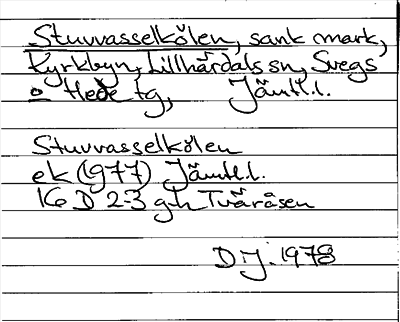 Stuvvasselkölen, sank mark,
Kyrkbyn, Lillhärdals sn, Svegs
o Hede tg, Jämtl.l.
Stuvvasselkölen
ek (1977) Jämtl.l.
16 D 2-3 g,h Tväråsen
D.J. 1978